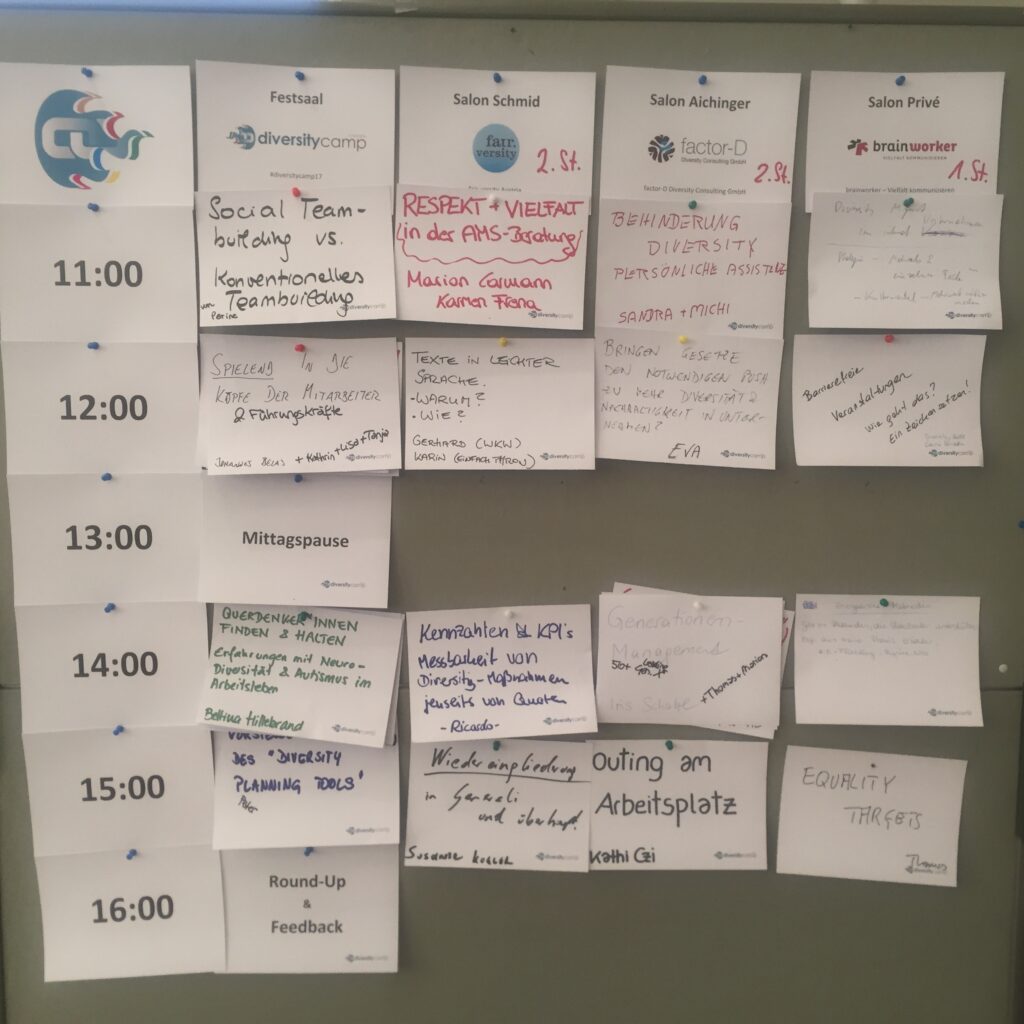 Festsaal
diversitycamp
#diversitycamp17
Salon Schmid
fair.
versity
2. St.
Salon Aichinger
factor-D
Diversity Consulting GmbH
2. St.
factor-D Diversity Consulting GmbH
Salon Privé
brainworker
VIELFALT KOMMUNIZIEREN
1. St.
brainworker – Vielfalt kommunizieren
11:00
Social Team-
building vs.
Konventionelles
Teambuilding
von
Perine
diversitycamp
RESPEKT + VIELFALT
in der AMS-Beratung
Marion Carmann
Karmen Frena
diversitycamp
BEHINDERUNG
DIVERSITY
PERSÖNLICHE ASSISTENZ
SANDRA + MICHI
diversitycamp
Diversity
diversitycamp
12:00
SPIELEND IN DIE
KÖPFE DER MITARBEITER
& Führungskräfte
+ Kathrin + Lisa + Tanja
diversitycamp
TEXTE IN LEICHTER
SPRACHE.
- WARUM?
- WIE?
GERHARD (WKW)
KARIN
diversitycamp
BRINGEN GESETZE
DEN NOTWENDIGEN PUSH
ZU MEHR DIVERSITÄT &
NACHHALTIGKEIT IN UNTER-
NEHMEN?
EVA
diversitycamp
Barrierefreie
Veranstaltungen
Wie geht das?
Ein Zeichen setzen!
diversitycamp
13:00
Mittagspause
diversitycamp
14:00
QUERDENKER*INNEN
FINDEN & HALTEN
Erfahrungen mit Neuro-
Diversität & Autismus im
Arbeitsleben
Bettina Hillebrand
diversitycamp
Kennzahlen & KPI's
Messbarkeit von
Diversity-Maßnahmen
jenseits von Quoten
- Ricardo -
diversitycamp
Generationen-
Management
50+
+Thomas+Marion
Iris
diversitycamp
diversitycamp
15:00
DES "DIVERSITY
PLANNING TOOLS"
Peter
diversitycamp
Wiedereingliederung
in Generali
und überhaupt!
Susanne
diversitycamp
Outing am
Arbeitsplatz
Kathi Czi
diversitycamp
EQUALITY
TARGETS
Thomas
diversitycamp
16:00
Round-Up
&
Feedback
diversitycamp